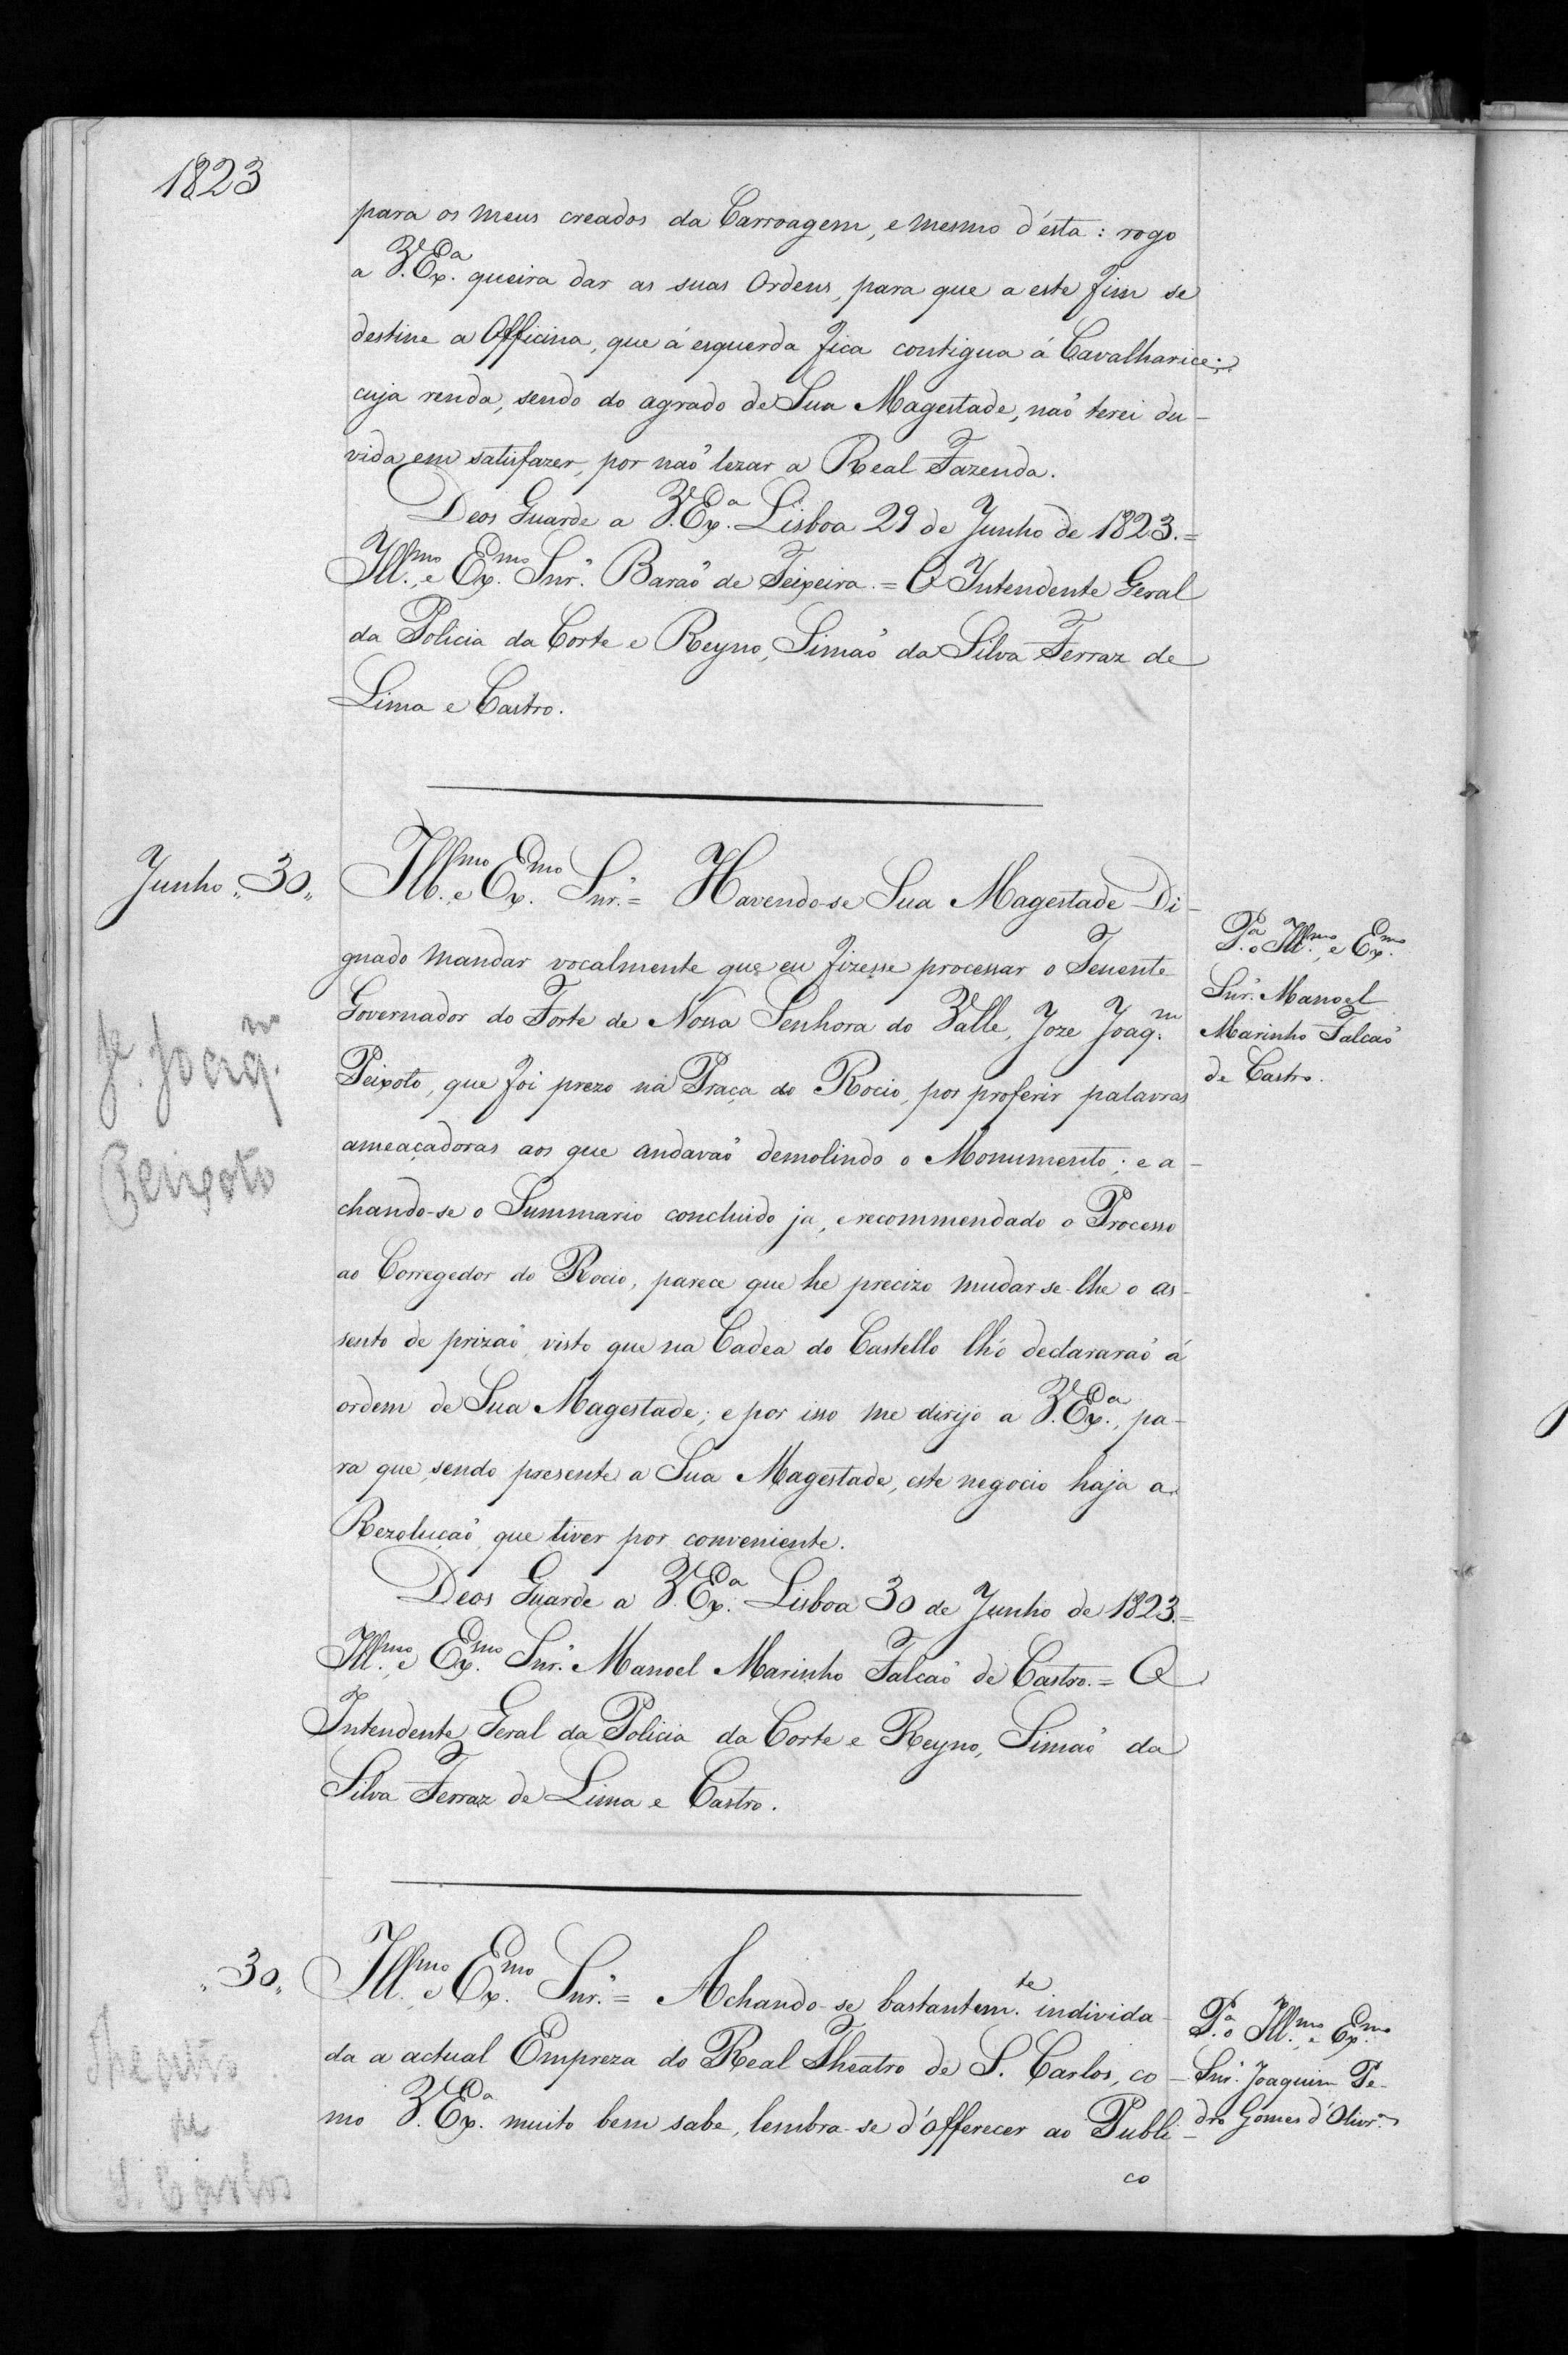 1823
para os meus creados da Carroagem, e mesmo d'ésta: rogo
a V. Ex.ª queira dar as suas Ordens, para que a este fim se
destine a Officina, que á esquerda fica contigua á Cavalharice;
cuja renda, sendo do agrado de Sua Magestade, naõ terei du-
vida em satisfazer, por naõ lezar a Real Fazenda.
Deos Guarde a V. Ex.ª Lisboa 29 de Junho de 1823.=
Ill.mo e Ex.mo Snr. Baraõ de Teixeira.= O Intendente Geral
da Policia da Corte e Reyno, Simaõ da Silva Ferraz de
Lima e Castro.
Junho "30"
Ill.mo e Ex.mo Snr.= Havendo-se Sua Magestade Di-
gnado mandar vocalmente que eu fizesse processar o Tenente
Governador do Forte de Nossa Senhora do Valle, Joze Joaq.m
Peixoto, que foi prezo na Praça do Rocio, por proferir palavras
ameaçadoras aos que andavaõ demolindo o Monumento; e a-
chando-se o Summario concluido ja, e recommendado o Processo
ao Corregedor do Rocio, parece que he precizo mudar-se-lhe o as-
sento de prizaõ, visto que na Cadea do Castello lh'o declararaõ á
ordem de Sua Magestade; e por isso me dirijo a V. Ex.ª, pa-
ra que sendo presente a Sua Magestade, este negocio haja a
Rezoluçaõ, que tiver por conveniente.
Deos Guarde a V. Ex.ª Lisboa 30 de Junho de 1823.=
Ill.mo e Ex.mo Snr. Manoel Marinho Falcaõ de Castro.= O
Intendente Geral da Policia da Corte e Reyno, Simaõ da
Silva Ferraz de Lima e Castro.
P.ª o Ill.mo e Ex.mo
Snr. Manoel
Marinho Falcaõ
de Castro.
Je. Joaq.m
Peixoto
"30"
Ill.mo e Ex.mo Snr.= Achando-se bastantem.te individa-
da a actual Empreza do Real Theatro de S. Carlos, co-
mo V. Ex.ª muito bem sabe, lembra-se d'offerecer ao Publi-
co
P.ª o Ill.mo e Ex.mo
Snr. Joaquim Pe-
dro Gomes d'Olivr.ª
Theatro
de
S. Carlos